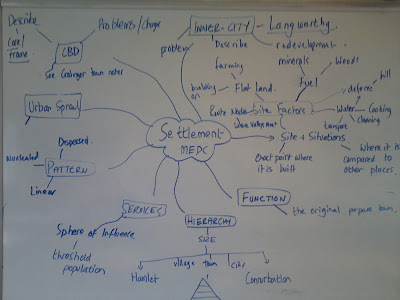 Describe
Core/
frame
Problems/Change
CBD
See Grainger town notes
INNER-CITY — Langworthy.
problems
Describe
redevelopment.
farming
minerals
building
on
Flat land.
Fuel
Wood
Route Node
Site Factors
hill
defence
Water
Cooking
cleaning
transport
Urban Sprawl
Settlement-
MEDC
Site + Situations
Where it is
compared to
other places.
Exact point where
it is built
Dispersed.
Nucleated
PATTERN
Linear
FUNCTION
the original purpose town,
SERVICES
Sphere of Influence
threshold
population
HIERARCHY
SIZE
Hamlet
Village
Town
City
Conurbation